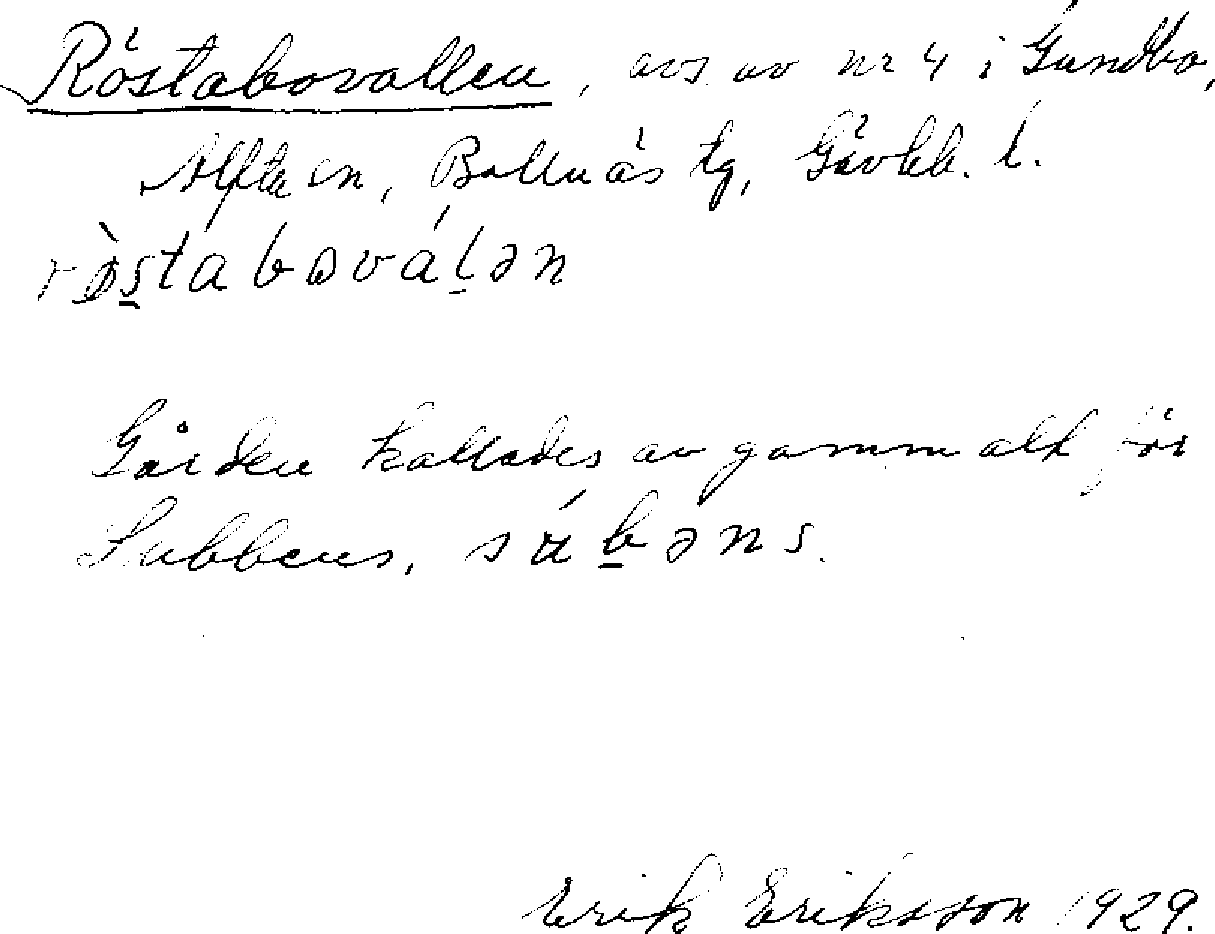 Röstabovallen, avs av nr 4 i Gundbo,
Alfta sn, Bollnäs tg, Gävleb. l.
rø̀s̠tabovál̠ən
Gården kallades av gammalt för
Subbens, súb̠əns.
Erik Eriksson 1929.